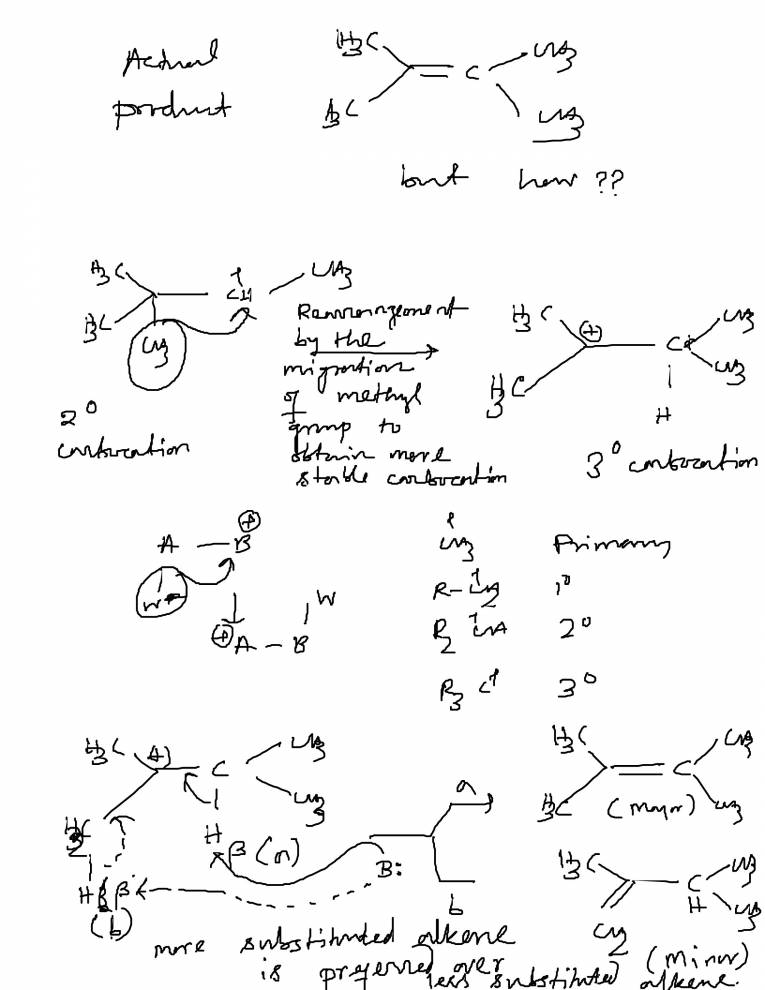 Actual
product
H3C
CH3
C
H3C
CH3
but how ??
H3C
+
CH
CH3
H3C
CH3
2°
carbocation
Rearrangement
by the
migration
of methyl
group to
obtain more
stable carbocation
H3C
+
C
CH3
CH3
H3C
H
3° carbocation
A — B +
W
W
+ A — B
+
CH3 Primary
R-CH2 + 1°
R2 CH + 2°
R3 C+ 3°
H3C
C
CH3
CH3
H2C
H
H
β (a)
B:
a
b
β
(b)
H3C
C
CH3
H3C
CH3
(major)
H3C
C
CH3
H
CH3
CH2
(minor)
more substituted alkene
is preferred over
less substituted alkene.